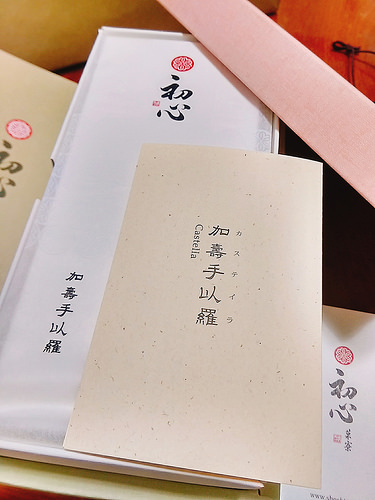 初心
加壽手以羅
初心
加壽手以羅
カステイラ
Castella
初心
菓寮